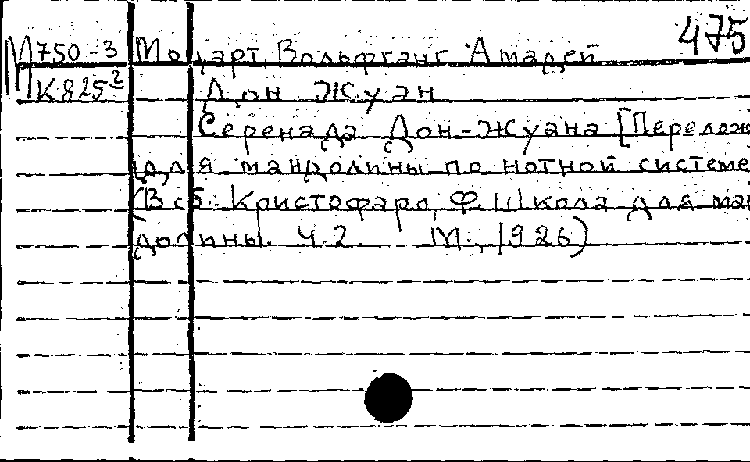 475
М750-3 Моцарт Вольфганг Амадей
К825² Дон Жуан
Серенада Дон-Жуана [Перелож
для мандолины по нотной системе
(В сб. Кристофаро, Ф. Школа для ман
долины. Ч.2. М., 1926)